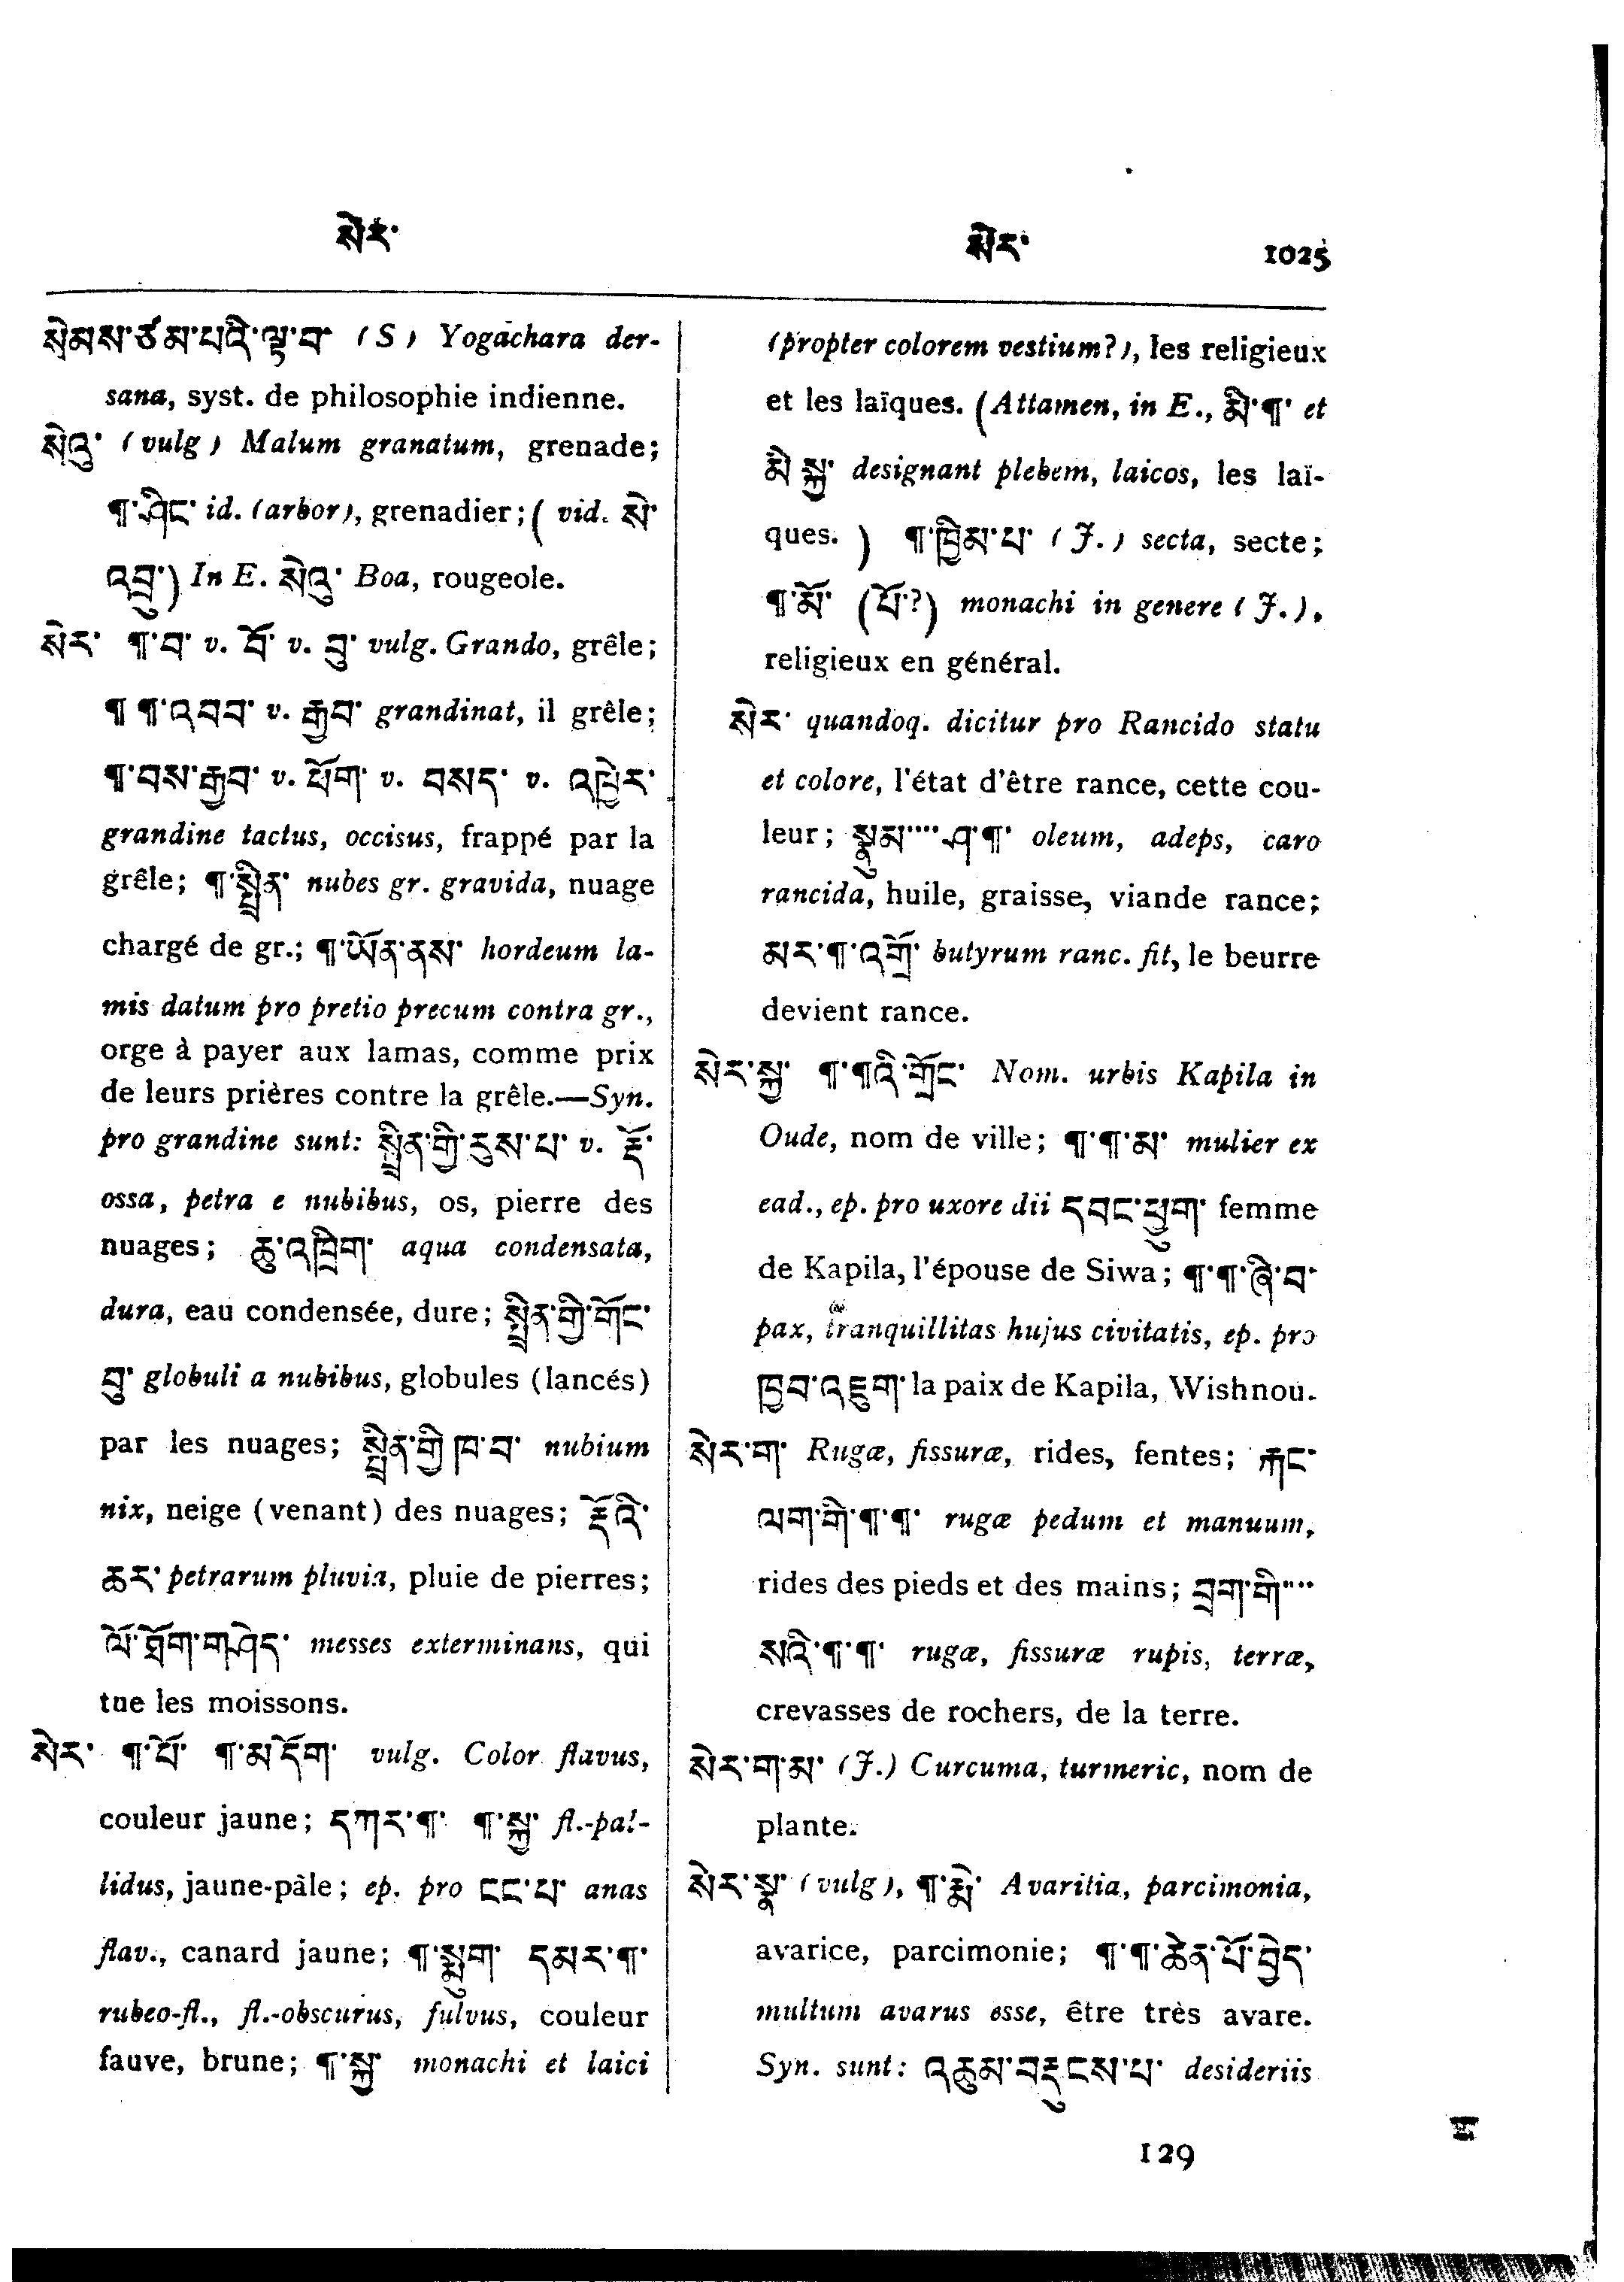 སེར་
སེར་ 1025
སེམས་ཙམ་པའི་ལྟ་བ་ (S) Yogāchara der-
sana, syst. de philosophie indienne.
སེའུ་ (vulg) Malum granatum, grenade;
¶་ཤིང་ id. (arbor), grenadier; (vid. སེ་
འབྲུ་) In E. སེའུ་ Boa, rougeole.
སེར་ ¶་བ་ v. བོ་ v. བུ་ vulg. Grando, grêle;
¶ ¶་འབབ་ v. རྒྱབ་ grandinat, il grêle;
¶་བས་རྒྱབ་ v. ཕོག་ v. བསད་ v. འཁྱེར་
grandine tactus, occisus, frappé par la
grêle; ¶་སྤྲིན་ nubes gr. gravida, nuage
chargé de gr.; ¶་ཡོན་ནས་ hordeum la-
mis datum pro pretio precum contra gr.,
orge à payer aux lamas, comme prix
de leurs prières contre la grêle.—Syn.
pro grandine sunt: སྤྲིན་གྱི་རུས་པ་ v. རྡོ་
ossa, petra e nubibus, os, pierre des
nuages; ཆུ་འཁྲིག་ aqua condensata,
dura, eau condensée, dure; སྤྲིན་གྱི་གོང་
བུ་ globuli a nubibus, globules (lancés)
par les nuages; སྤྲིན་གྱི་ཁ་བ་ nubium
nix, neige (venant) des nuages; རྡོའི་
ཆར་ petrarum pluvia, pluie de pierres;
ལོ་ཐོག་གཤེད་ messes exterminans, qui
tue les moissons.
སེར་ ¶་པོ་ ¶་མདོག་ vulg. Color flavus,
couleur jaune; དཀར་¶་ ¶་སྐྱ་ fl.-pal-
lidus, jaune-pâle; ep. pro ངང་པ་ anas
flav., canard jaune; ¶་སྨུག་ དམར་¶་
rubeo-fl., fl.-obscurus, fulvus, couleur
fauve, brune; ¶་སྐྱ་ monachi et laici
(propter colorem vestium?), les religieux
et les laïques. (Attamen, in E., མི་¶་ et
མི་སྐྱ་ designant plebem, laicos, les laï-
ques.) ¶་ཁྱིམ་པ་ (J.) secta, secte;
¶་མོ་ (པོ་?) monachi in genere (J.),
religieux en général.
སེར་ quandoq. dicitur pro Rancido statu
et colore, l'état d'être rance, cette cou-
leur; སྣུམ་....ཤ་¶་ oleum, adeps, caro
rancida, huile, graisse, viande rance;
མར་¶་འགྲོ་ butyrum ranc. fit, le beurre
devient rance.
སེར་སྐྱ་ ¶་¶འི་གྲོང་ Nom. urbis Kapila in
Oude, nom de ville; ¶་¶་མ་ mulier ex
ead., ep. pro uxore dii དབང་ཕྱུག་ femme
de Kapila, l'épouse de Siwa; ¶་¶་ཞི་བ་
pax, tranquillitas hujus civitatis, ep. pro
ཁྱབ་འཇུག་ la paix de Kapila, Wishnou.
སེར་ག་ Rugæ, fissuræ, rides, fentes; རྐང་
ལག་གི་¶་¶་ rugæ pedum et manuum,
rides des pieds et des mains; བྲག་གི་....
སའི་¶་¶་ rugæ, fissuræ rupis, terræ,
crevasses de rochers, de la terre.
སེར་ག་མ་ (J.) Curcuma, turmeric, nom de
plante.
སེར་སྣ་ (vulg), ¶་ Avaritia, parcimonia,
avarice, parcimonie; ¶་¶་ཆེན་པོ་བྱེད་
multum avarus esse, être très avare.
Syn. sunt: འཆུམ་བརྡུངས་པ་ desideriis
129